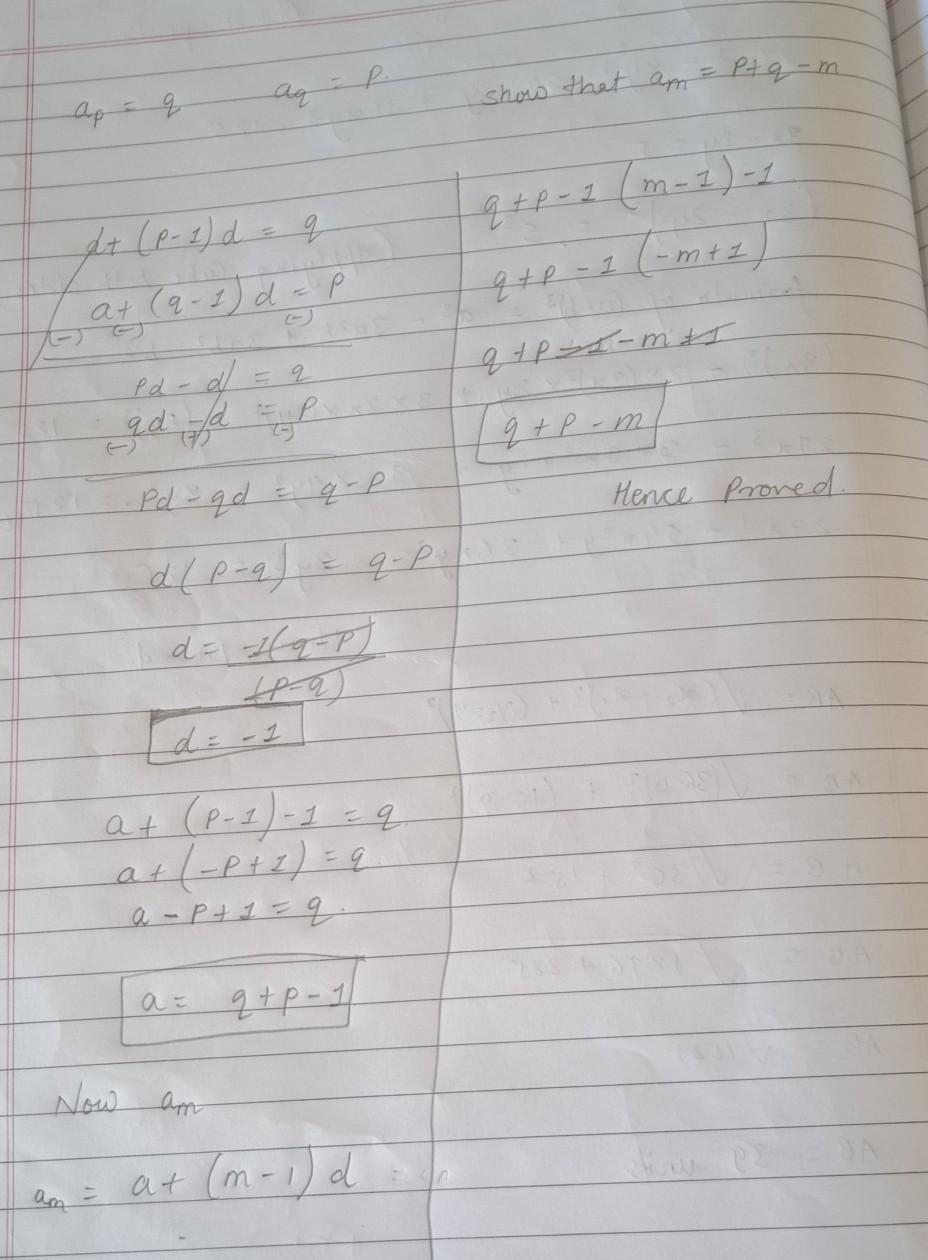 a_p = q a_q = p. show that a_m = p+q-m
d+ (p-1)d = q
a+ (q-1)d = p
(-) (-) (-)
pd - d = q
qd - d = p
(-) (+) (-)
pd - qd = q-p
d(p-q) = q-p
d = -1(q-p)
(p-q)
d = -1
a+ (p-1)-1 = q
a+(-p+1) = q
a-p+1 = q.
a= q+p-1
Now a_m
a_m = a+(m-1)d =
q+p-1 (m-1)-1
q+p-1 (-m+1)
q+p-1-m+1
q+p-m
Hence Proved.